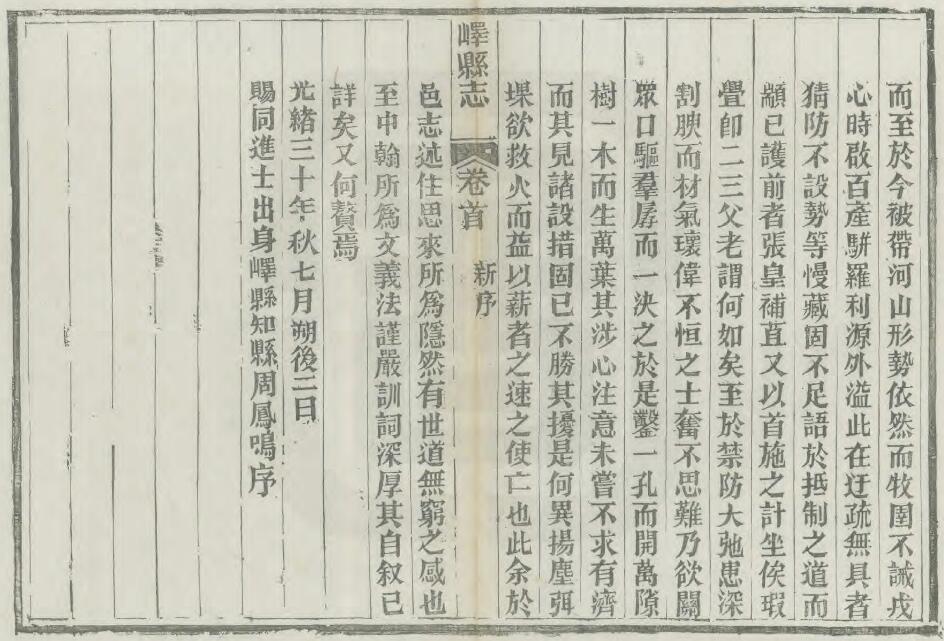 而至於今被帶河山形勢依然而牧圉不誡戎
心時啟百產駢羅利源外溢此在迂疏無具者
猜防不設勢等慢藏固不足語於抵制之道而
顓已護前者張皇補苴又以首施之計坐俟瑕
釁卽二三父老謂何如矣至於禁防大弛患深
割腴而材氣瓌偉不恒之士奮不思難乃欲關
眾口驅羣孱而一決之於是鑿一孔而開萬隙
樹一木而生萬葉其涉心注意未嘗不求有濟
而其見諸設措固已不勝其擾是何異揚塵弭
堁欲救火而益以薪者之速之使亡也此余於
嶧縣志 卷首 新序
邑志述往思來所為隱然有世道無窮之感也
至中翰所為文義法謹嚴訓詞深厚其自叙已
詳矣又何贅焉
光緒三十年秋七月朔後二日
賜同進士出身嶧縣知縣周鳳鳴序